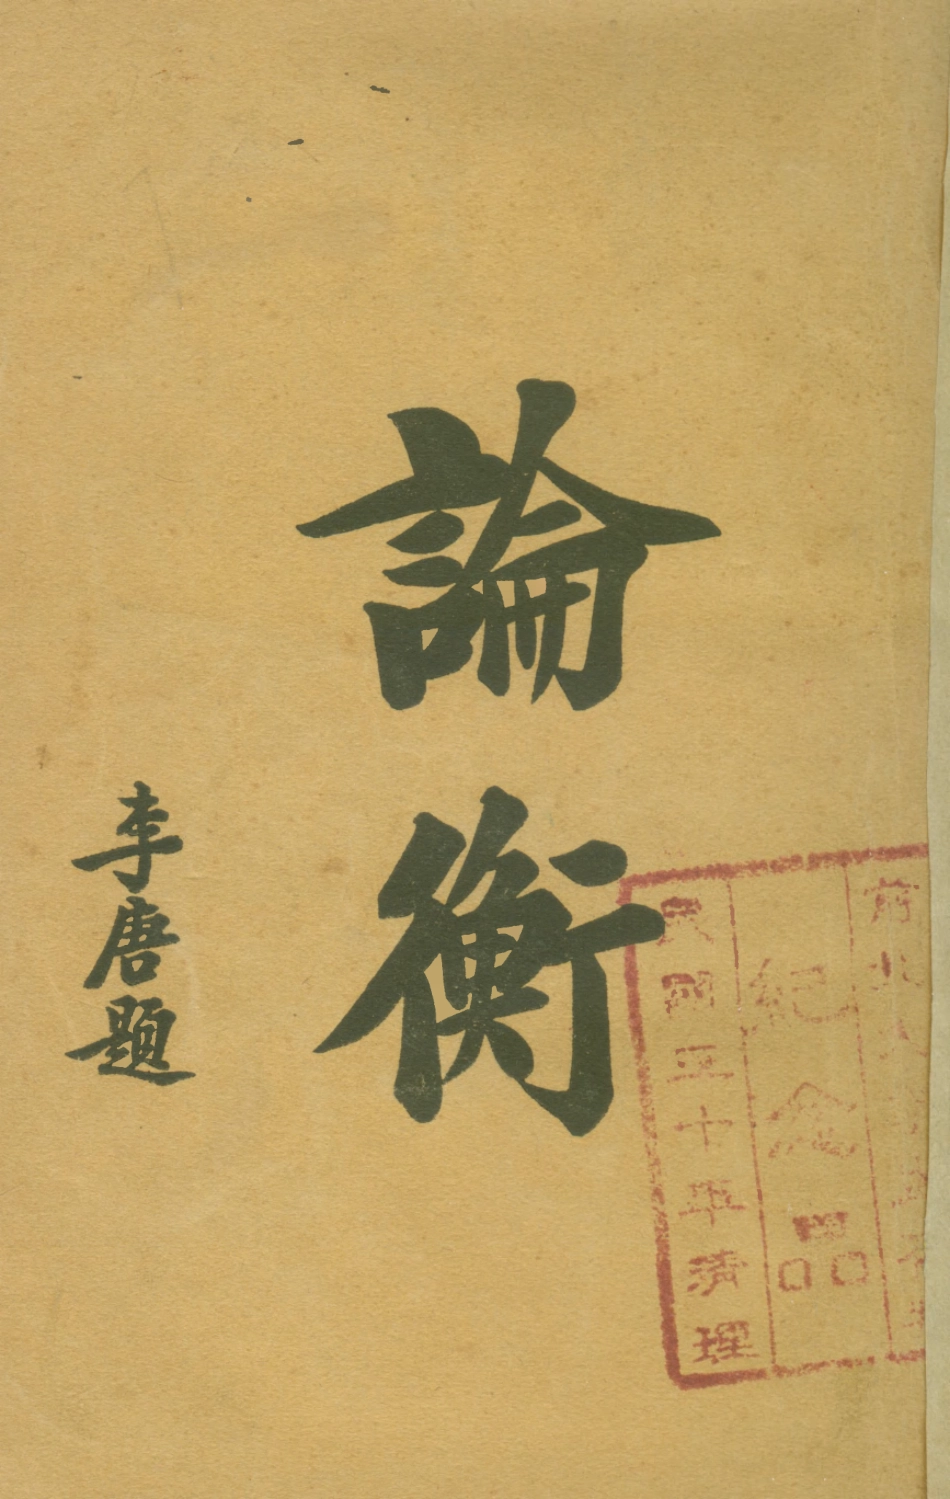 論衡
李唐題
紀念品
民國五十年清理